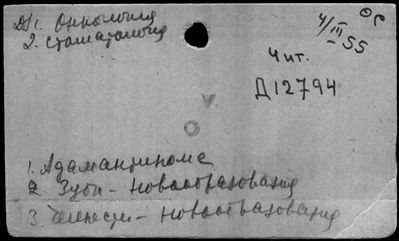 1. Онкология
2. Стоматология
4/III – 55
Чит.
Д12794
1. Адамантинома
2. Зубы – Новообразования
3. Челюсти – Новообразования